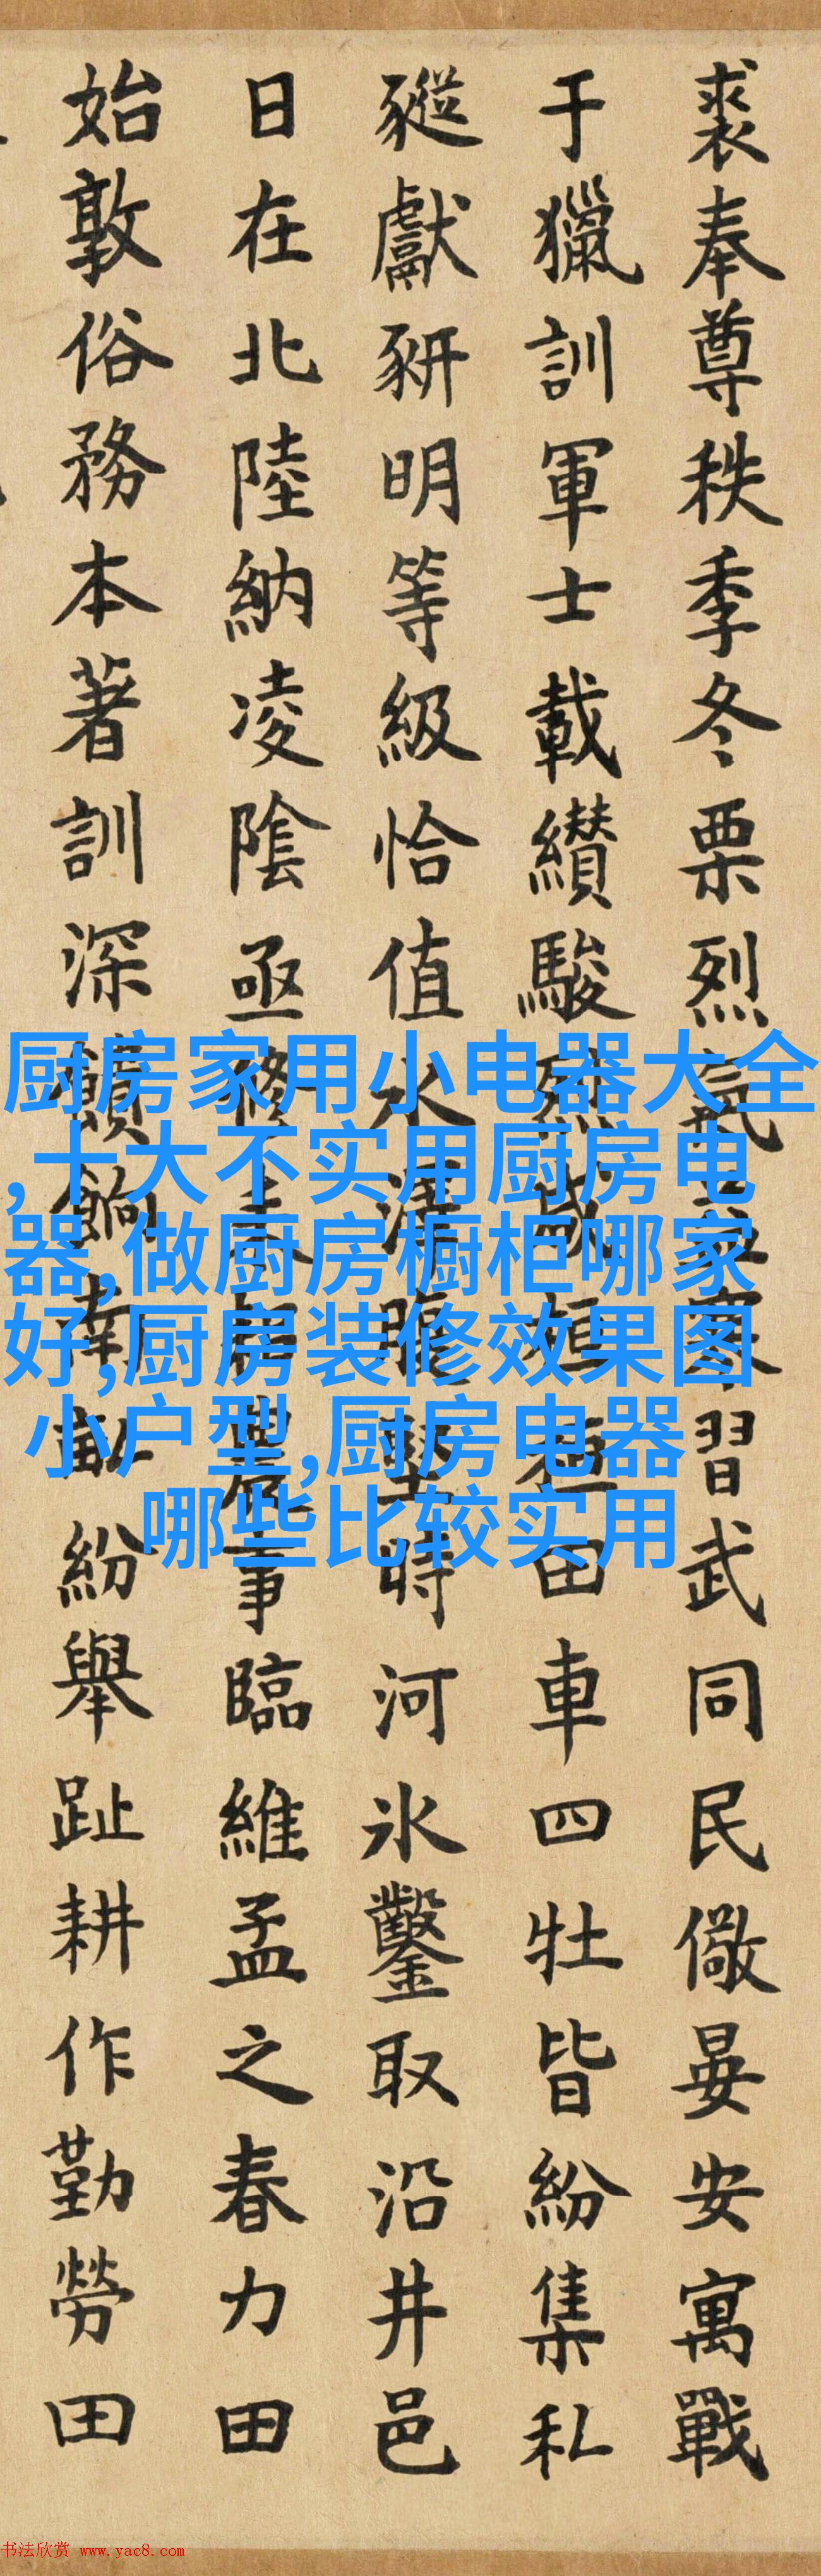 裘奉尊秩季冬栗烈氣家習武同民儆晏安寓戰
于獵訓軍士載纘駿烈威桓桓田車四牡皆紛集私
豵獻豜明等級恰值水澤腹堅時河氷鑿取沿井邑
日在北陸納凌陰亟修耒耜農事臨維孟之春力田
始敦俗務本著訓深饋餉南畝紛舉趾耕作勤勞田
厨房家用小电器大全
,十大不实用厨房电
器,做厨房橱柜哪家
好,厨房装修效果图
小户型,厨房电器
哪些比较实用
书法欣赏 www.yac8.com